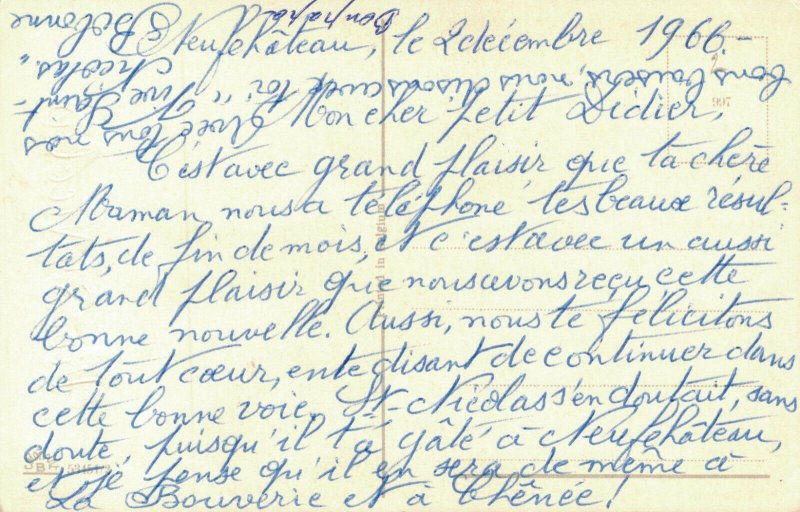 Neufchâteau, le 2 décembre 1966.-
Mon cher Petit Didier,
C'est avec grand plaisir que ta chère
Maman, nous a téléphoné tes beaux résul-
tats, de fin de mois, et c'est avec un aussi
grand plaisir que nous avons reçu cette
bonne nouvelle. Aussi, nous te félicitons
de tout cœur, en te disant de continuer dans
cette bonne voie. St-Nicolas s'en doutait, sans
doute, puisqu'il t'a gâté à Neufchâteau,
et je pense qu'il en sera de même à
La Bouverie et à Chênée!
Avec tous nos
bons baisers, nous disons avec toi "Vive Saint-
Nicolas."
Bonpapa
997
Printed in Belgium